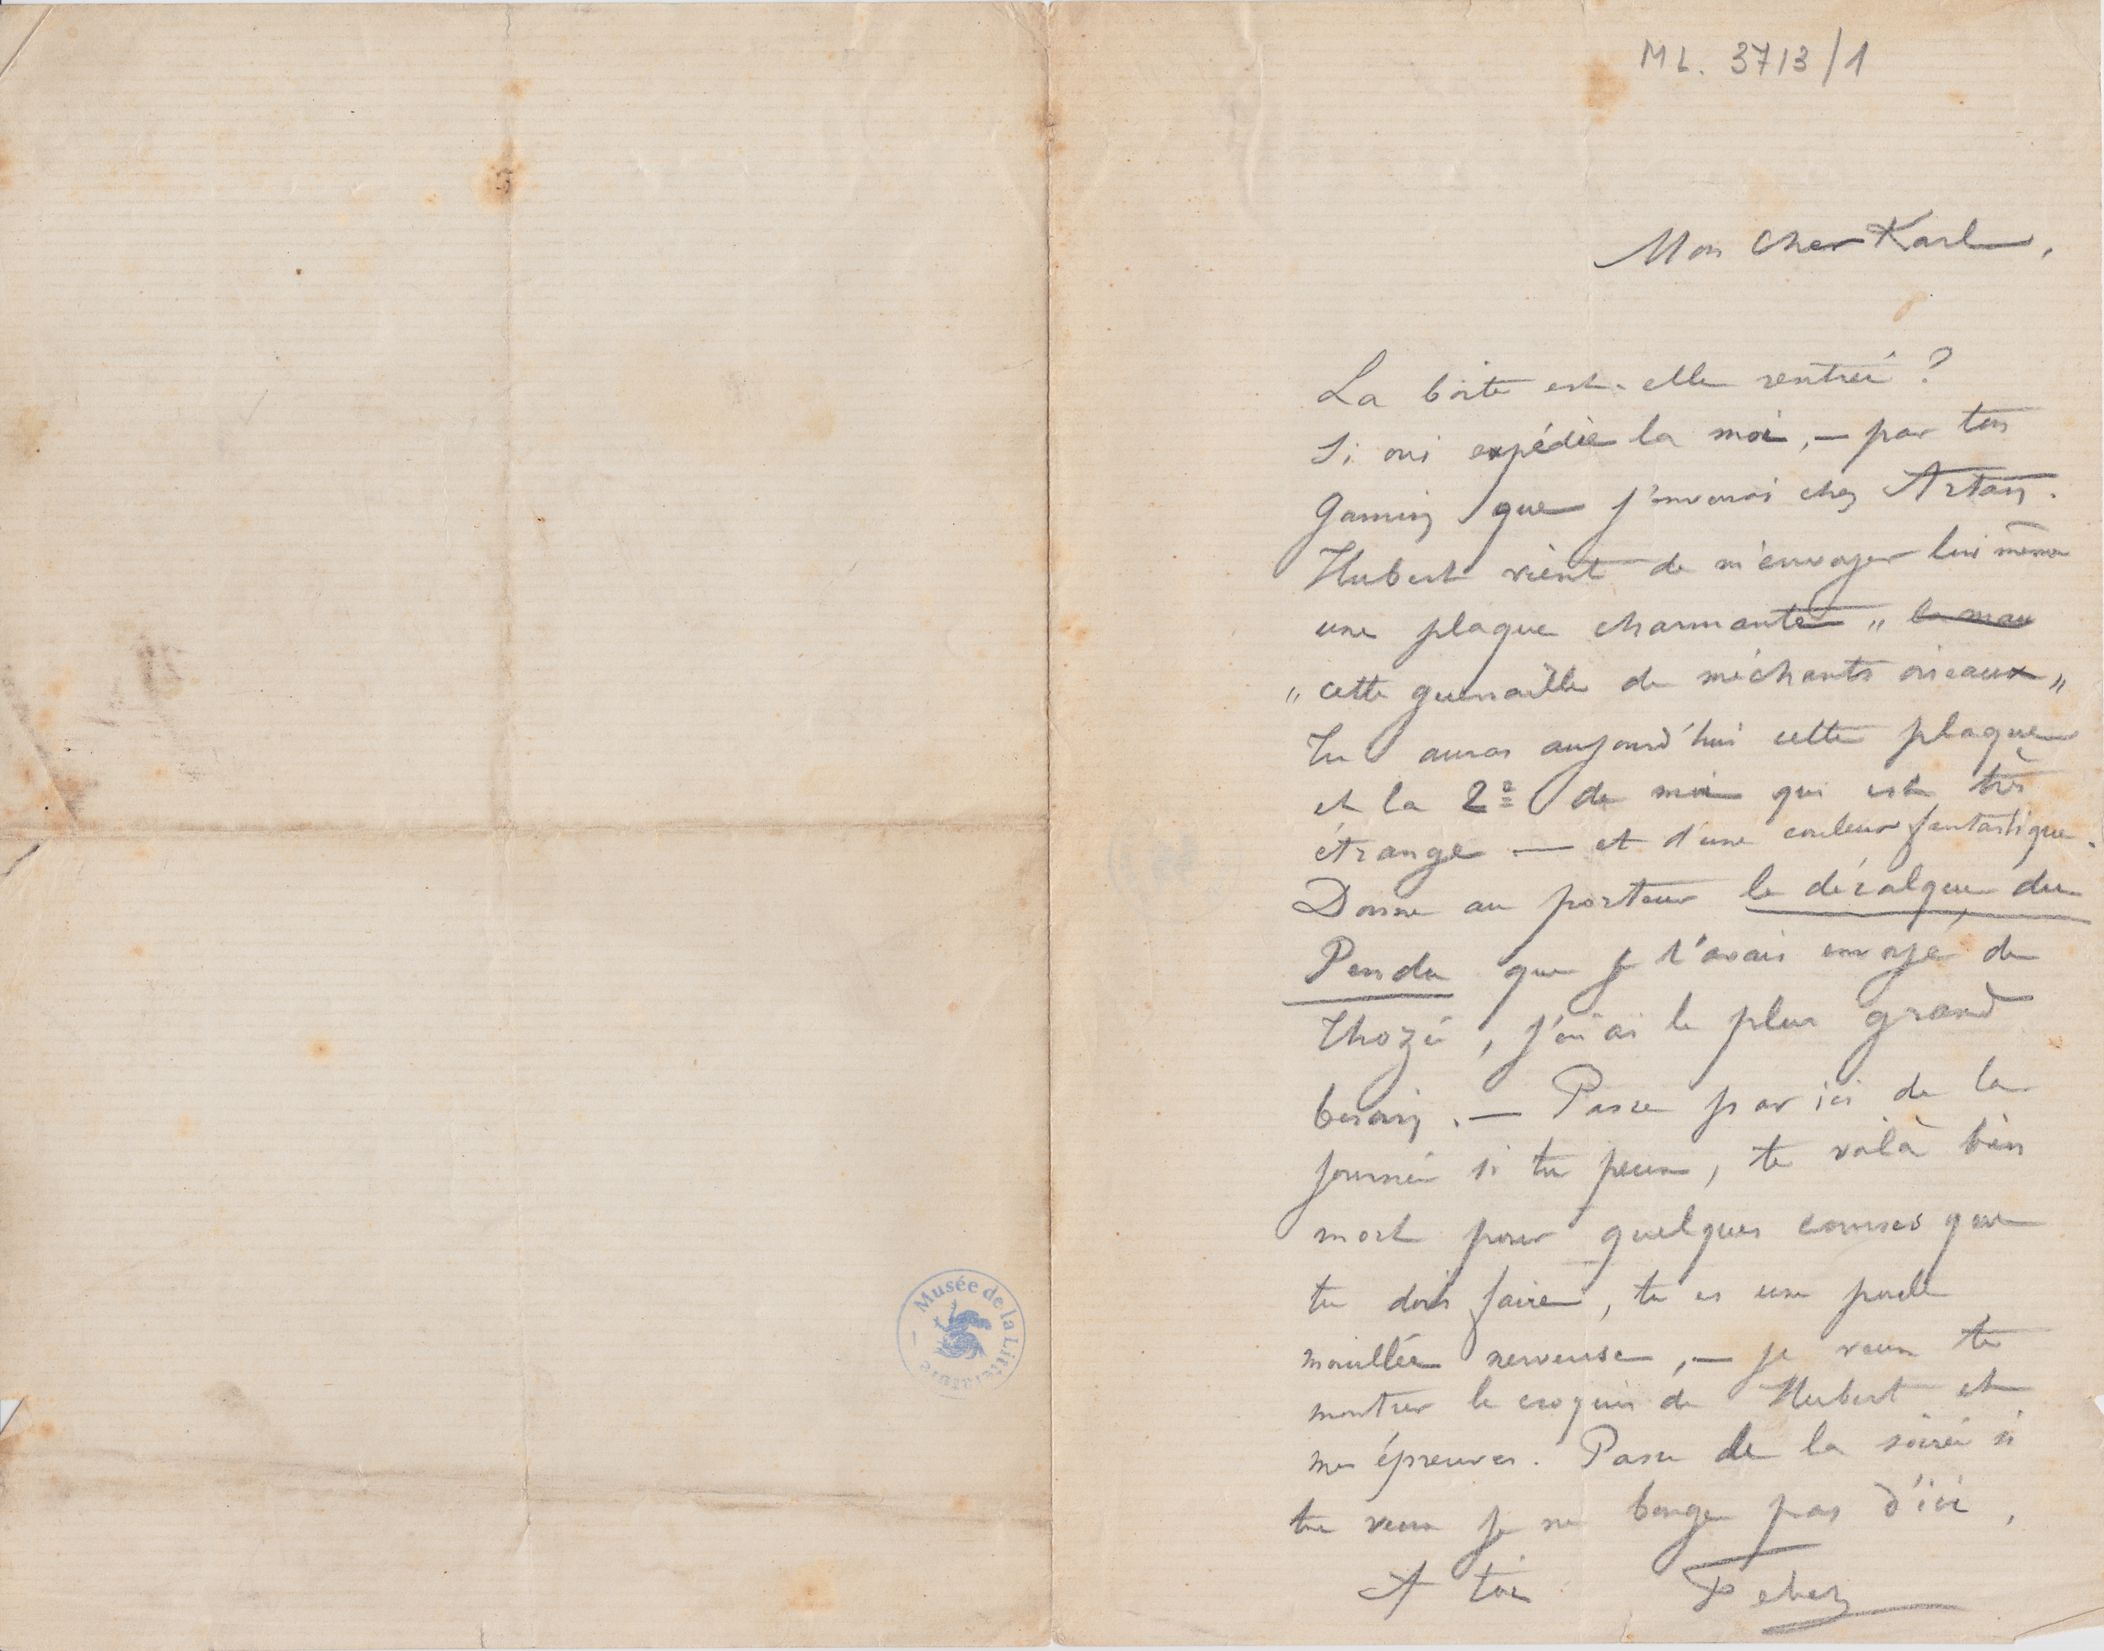 ML. 3713/1
Mon cher Karl,
La boîte est-elle rentrée ?
Si oui expédie la moi, — par ton
gamin que j'enverrai chez Artan.
Hubert vient de m'envoyer lui même
une plaque charmante „ la mau
„ cette guenaille de méchants oiseaux „
Tu auras aujourd'hui cette plaque
et la 2e de moi qui est très
étrange — et d'une couleur fantastique.
Donne au porteur le décalque du
Pendu que je t'avais envoyé de
Thozée, j'en ai le plus grand
besoin. — Passe par ici de la
journée si tu peux, te voilà bien
mort pour quelques courses que
tu dois faire, tu es une poule
mouillée nerveuse, — je veux te
montrer le croquis de Hubert et
mes épreuves. Passe de la soirée si
tu veux je ne bouge pas d'ici,
A toi
Musée de la Littérature